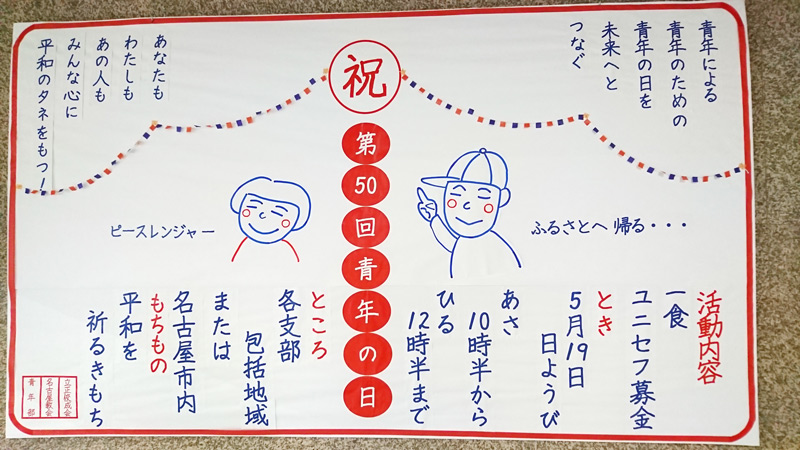 祝
第50回青年の日
青年による
青年のための
青年の日を
未来へと
つなぐ
あなたも
わたしも
あの人も
みんな心に
平和のタネをもつ!
ふるさとへ 帰る・・・
ピースレンジャー
活動内容
一食
ユニセフ募金
とき
5月19日
日ようび
あさ
10時半から
ひる
12時半まで
ところ
各支部
包括地域
または
名古屋市内
もちもの
平和を
祈るきもち
立正佼成会
名古屋教会
青年部